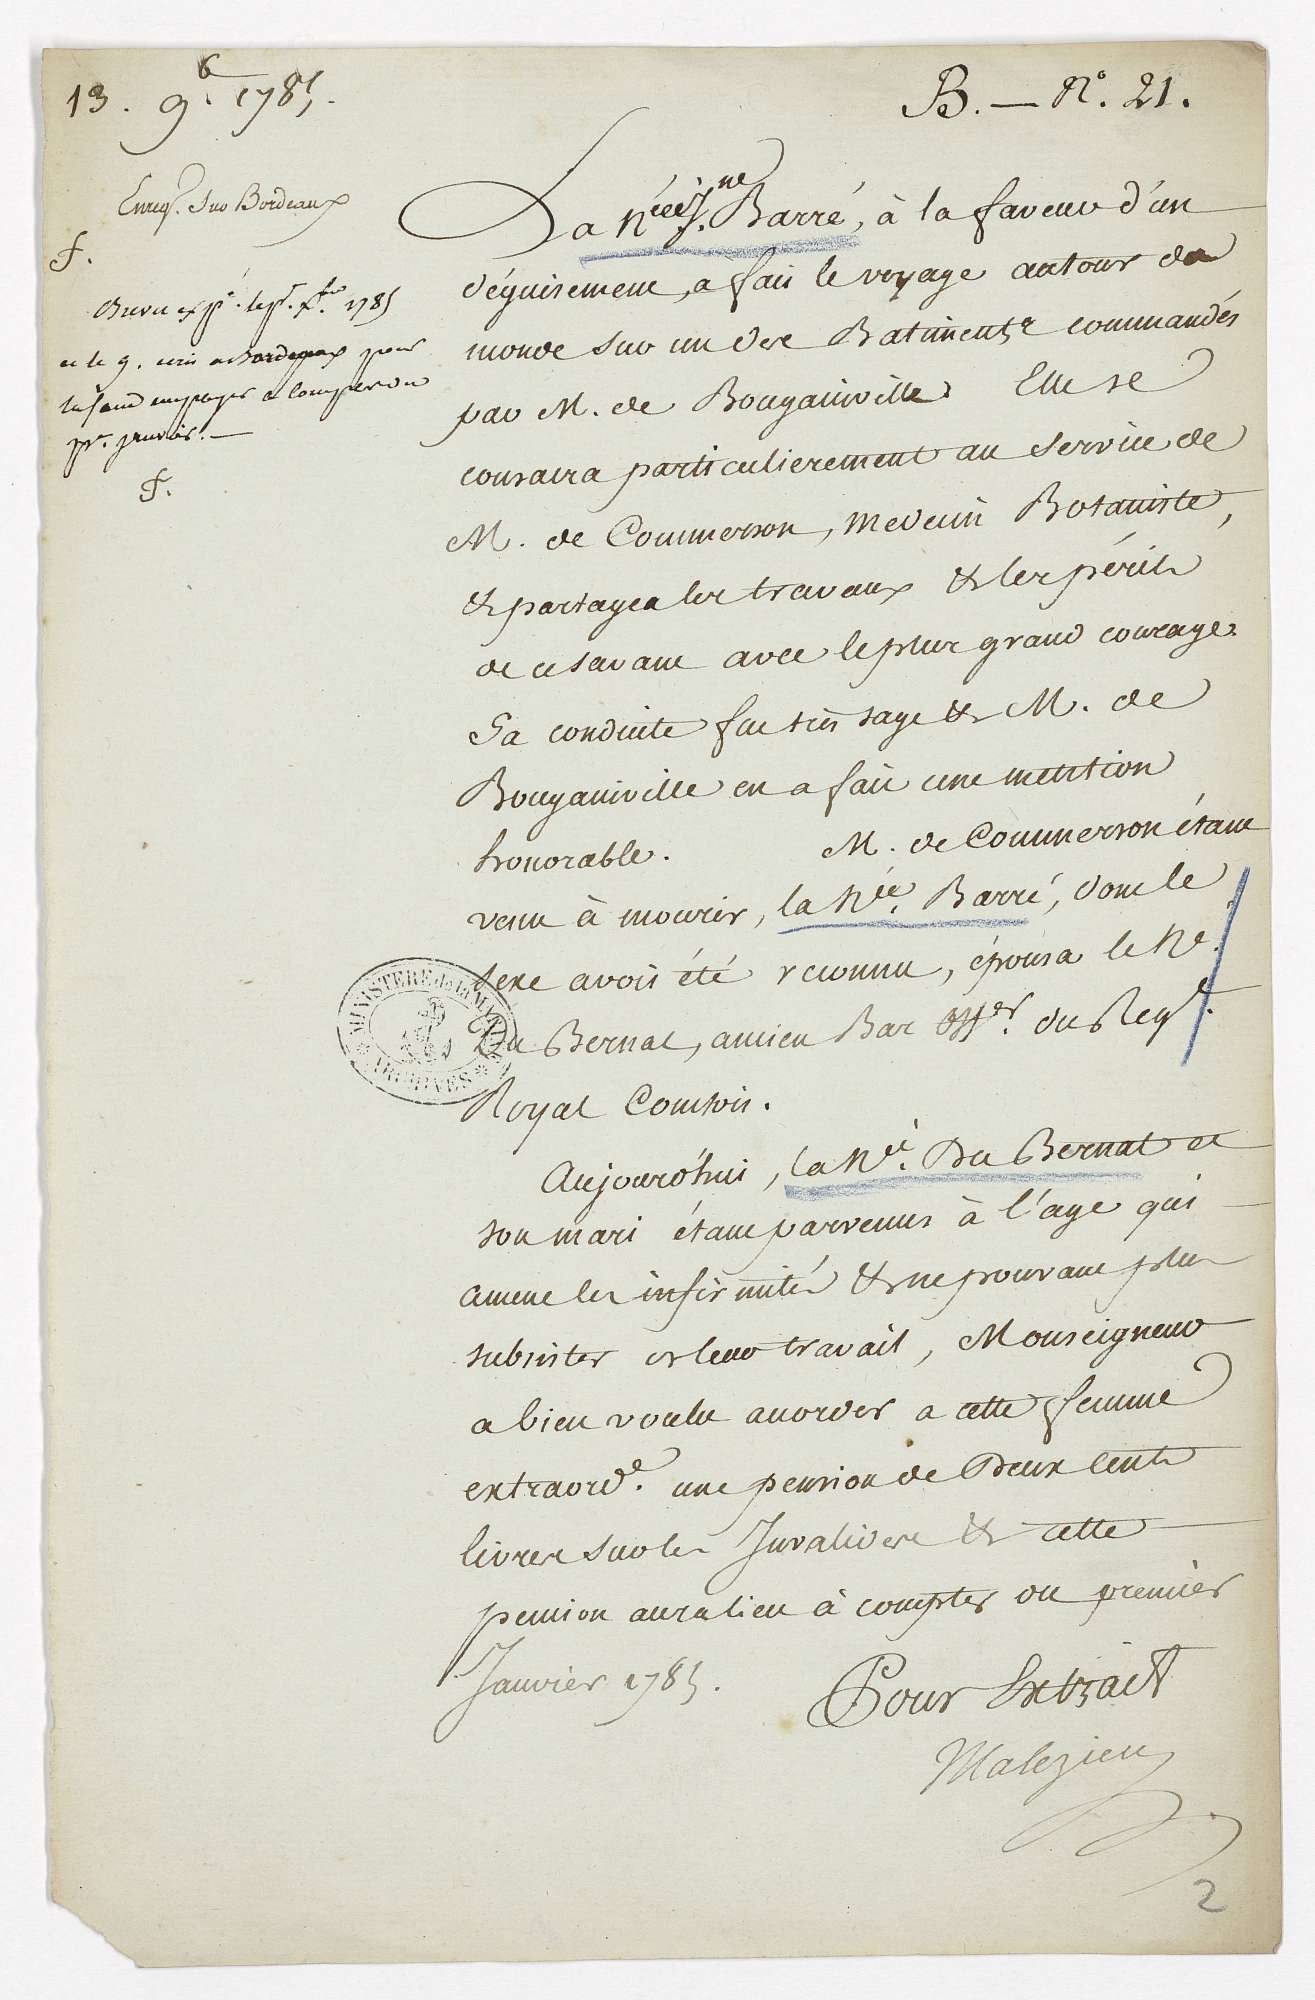 13. 9.b 1785.
B. — N.º 21.
Enreg. Sur Bordeaux
f.
1785
et le 9. pour
f.
La N.ée J.ne Barré, à la faveur d'un
déguisement, a fait le voyage autour du
monde sur un des Batiments commandés
par M. de Bougainville. Elle se
consacra particulierement au service de
M. de Commerson, medecin Botaniste,
& partagea les travaux & les périls
de ce savant avec le plus grand courage.
Sa conduite fut très sage & M. de
Bougainville en a fait une mention
honorable. M. de Commerson étant
venu à mourir, la N.ée Barré, dont le
sexe avoit été reconnu, épousa le N.é
Du Bernat, ancien Bas Off.er du Reg.t
Royal Comtois.
Aujourd'hui, la N.ée Du Bernat et
son mari étant parvenus à l'age qui
amene les infirmités & ne pouvant plus
subsister de leur travail, Monseigneur
a bien voulu accorder a cette femme
extraord.e une pension de Deux Cents
livres sur les Invalides & cette
pension aura lieu à compter du premier
Janvier 1785.
Pour Extrait
Malezieu
MINISTERE de la MARINE
ARCHIVES
2